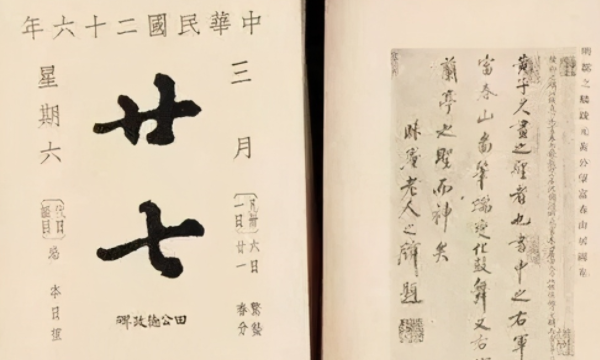 中華民國二十六年
三月
〔凡卅一日〕
六日驚蟄
廿一春分
廿七
田公德政碑
星期六
明鄒之麟跋元黃公望富春山居圖卷
黃子久畫之聖者也書中之右軍
富春山圖筆端變化鼓舞又右
蘭亭也聖而神矣
昧庵老人之麟題